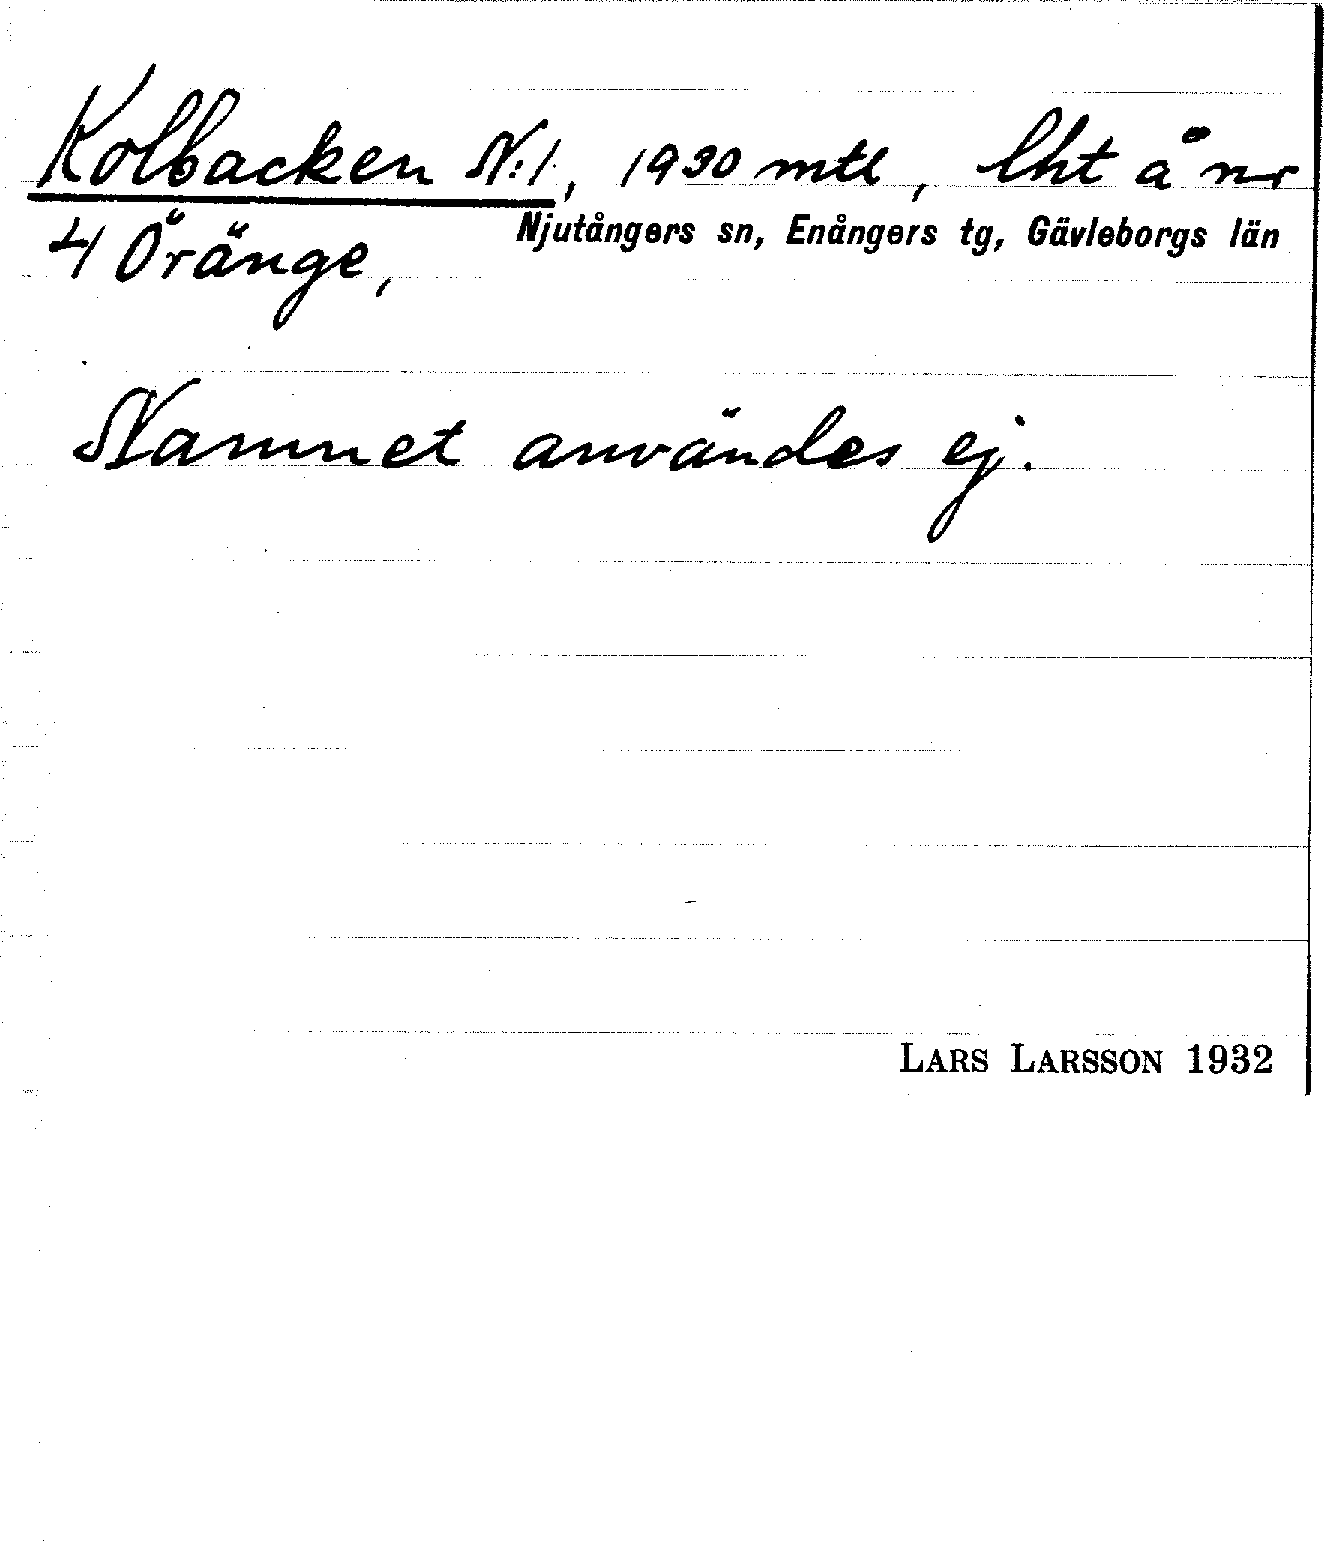 Kolbacken N:1, 1930 mtl, lht å nr
4 Öränge, Njutångers sn, Enångers tg, Gävleborgs län
Namnet användes ej.
LARS LARSSON 1932